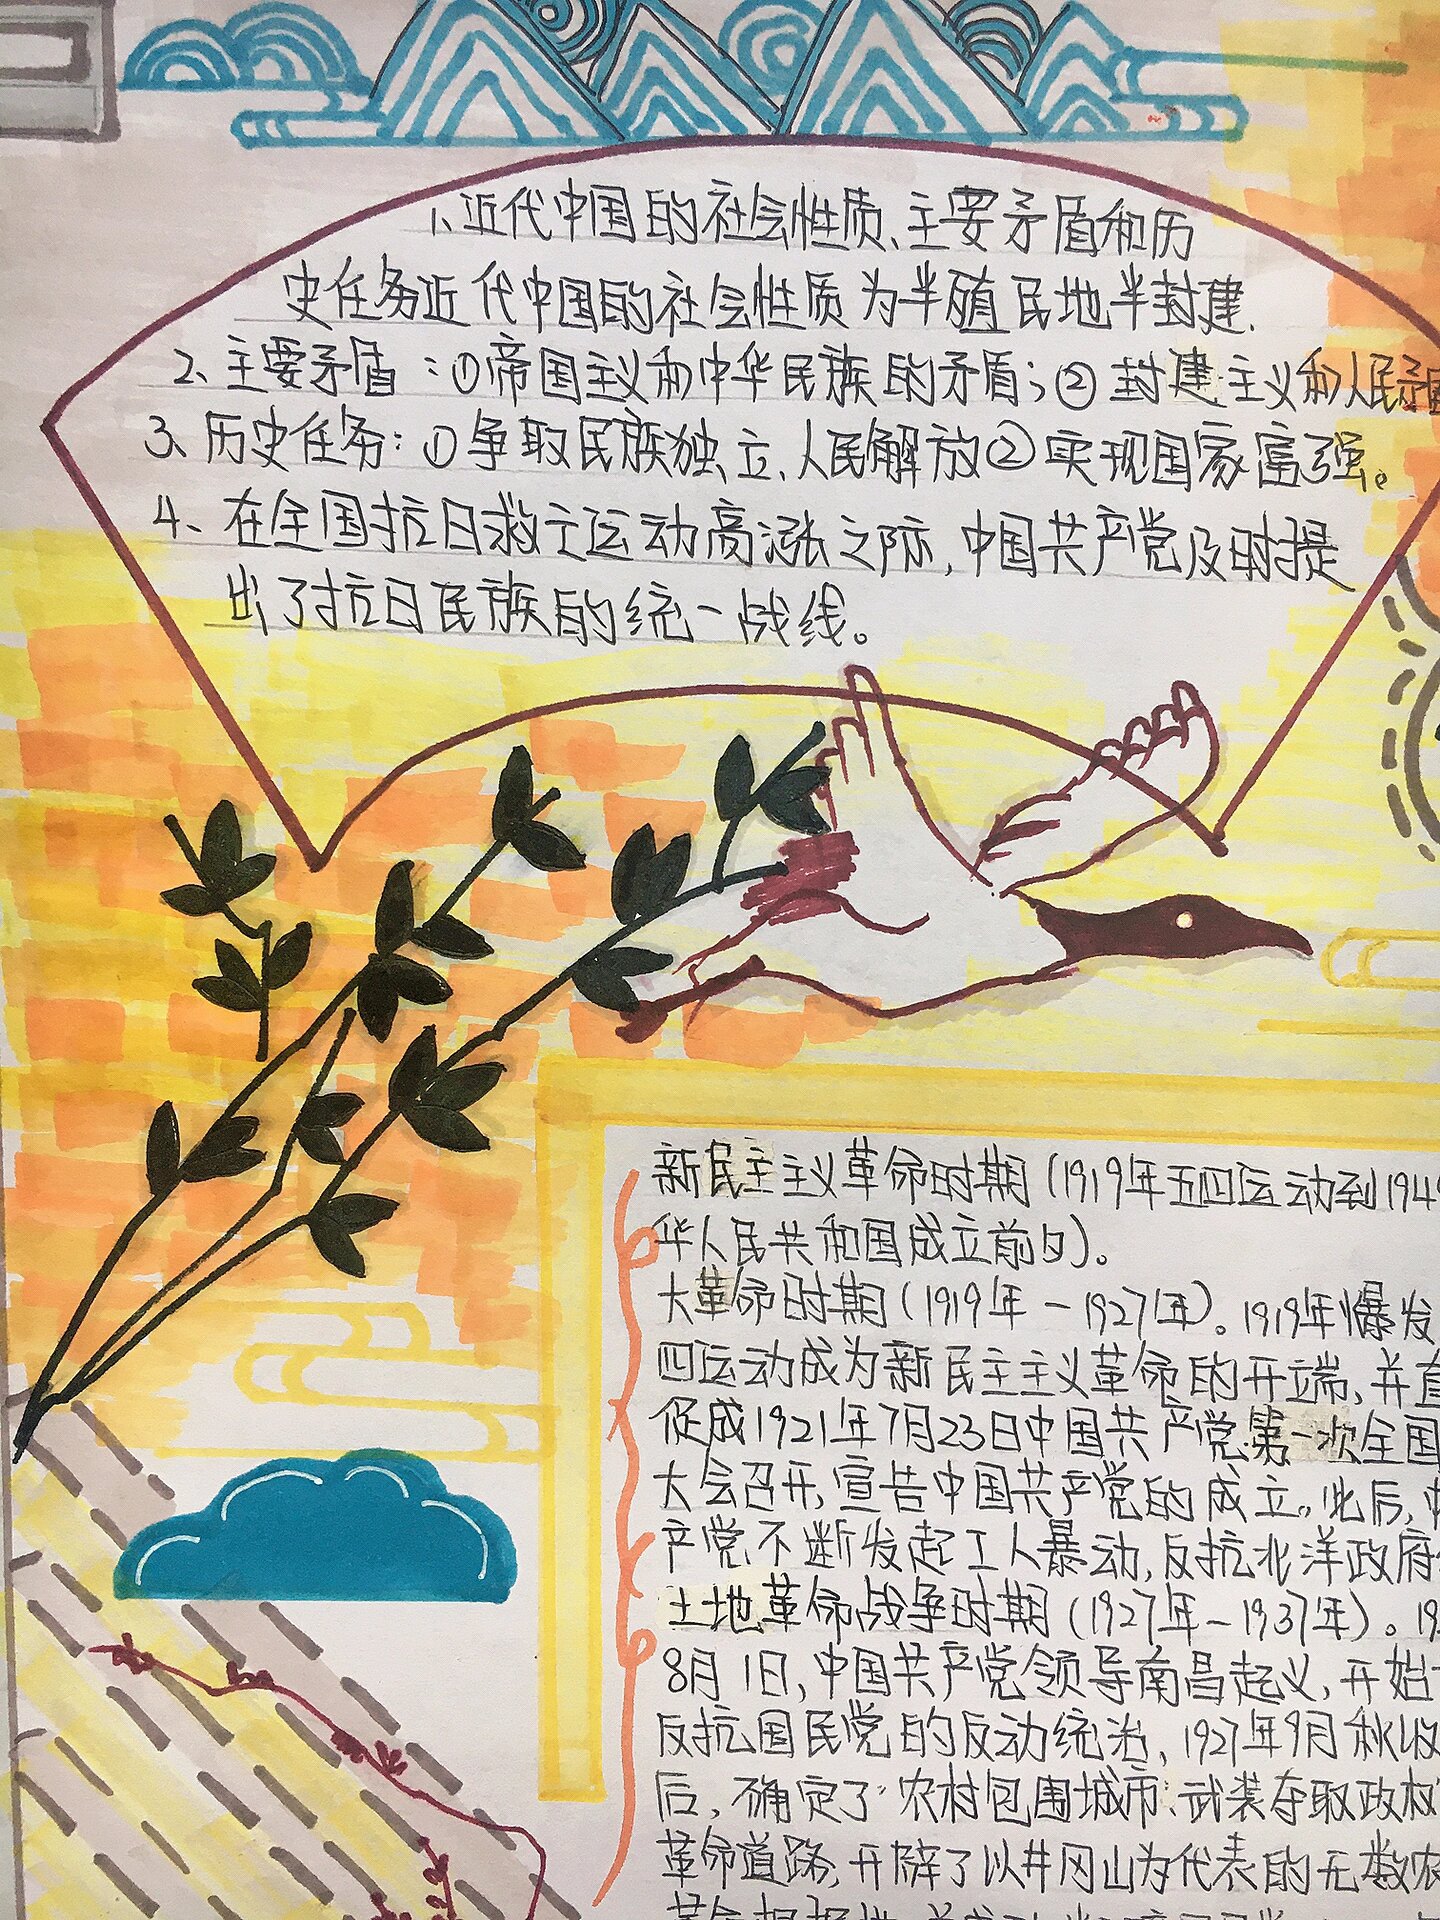 1、近代中国的社会性质、主要矛盾和历
史任务近代中国的社会性质为半殖民地半封建.
2、主要矛盾：①帝国主义和中华民族的矛盾；②封建主义和人民矛盾
3、历史任务：①争取民族独立、人民解放②实现国家富强。
4、在全国抗日救亡运动高涨之际，中国共产党及时提
出了抗日民族的统一战线。
新民主主义革命时期（1919年五四运动到194
华人民共和国成立前夕）。
大革命时期（1919年－1927年）。1919年爆发
四运动成为新民主主义革命的开端，并直
促成1921年7月23日中国共产党第一次全国
大会召开，宣告中国共产党的成立。此后，中
产党不断发起工人暴动，反抗北洋政府
土地革命战争时期（1927年－1937年）。19
8月1日，中国共产党领导南昌起义，开始
反抗国民党的反动统治，1927年9月秋收
后，确定了“农村包围城市，武装夺取政权”
革命道路，开辟了以井冈山为代表的无数农